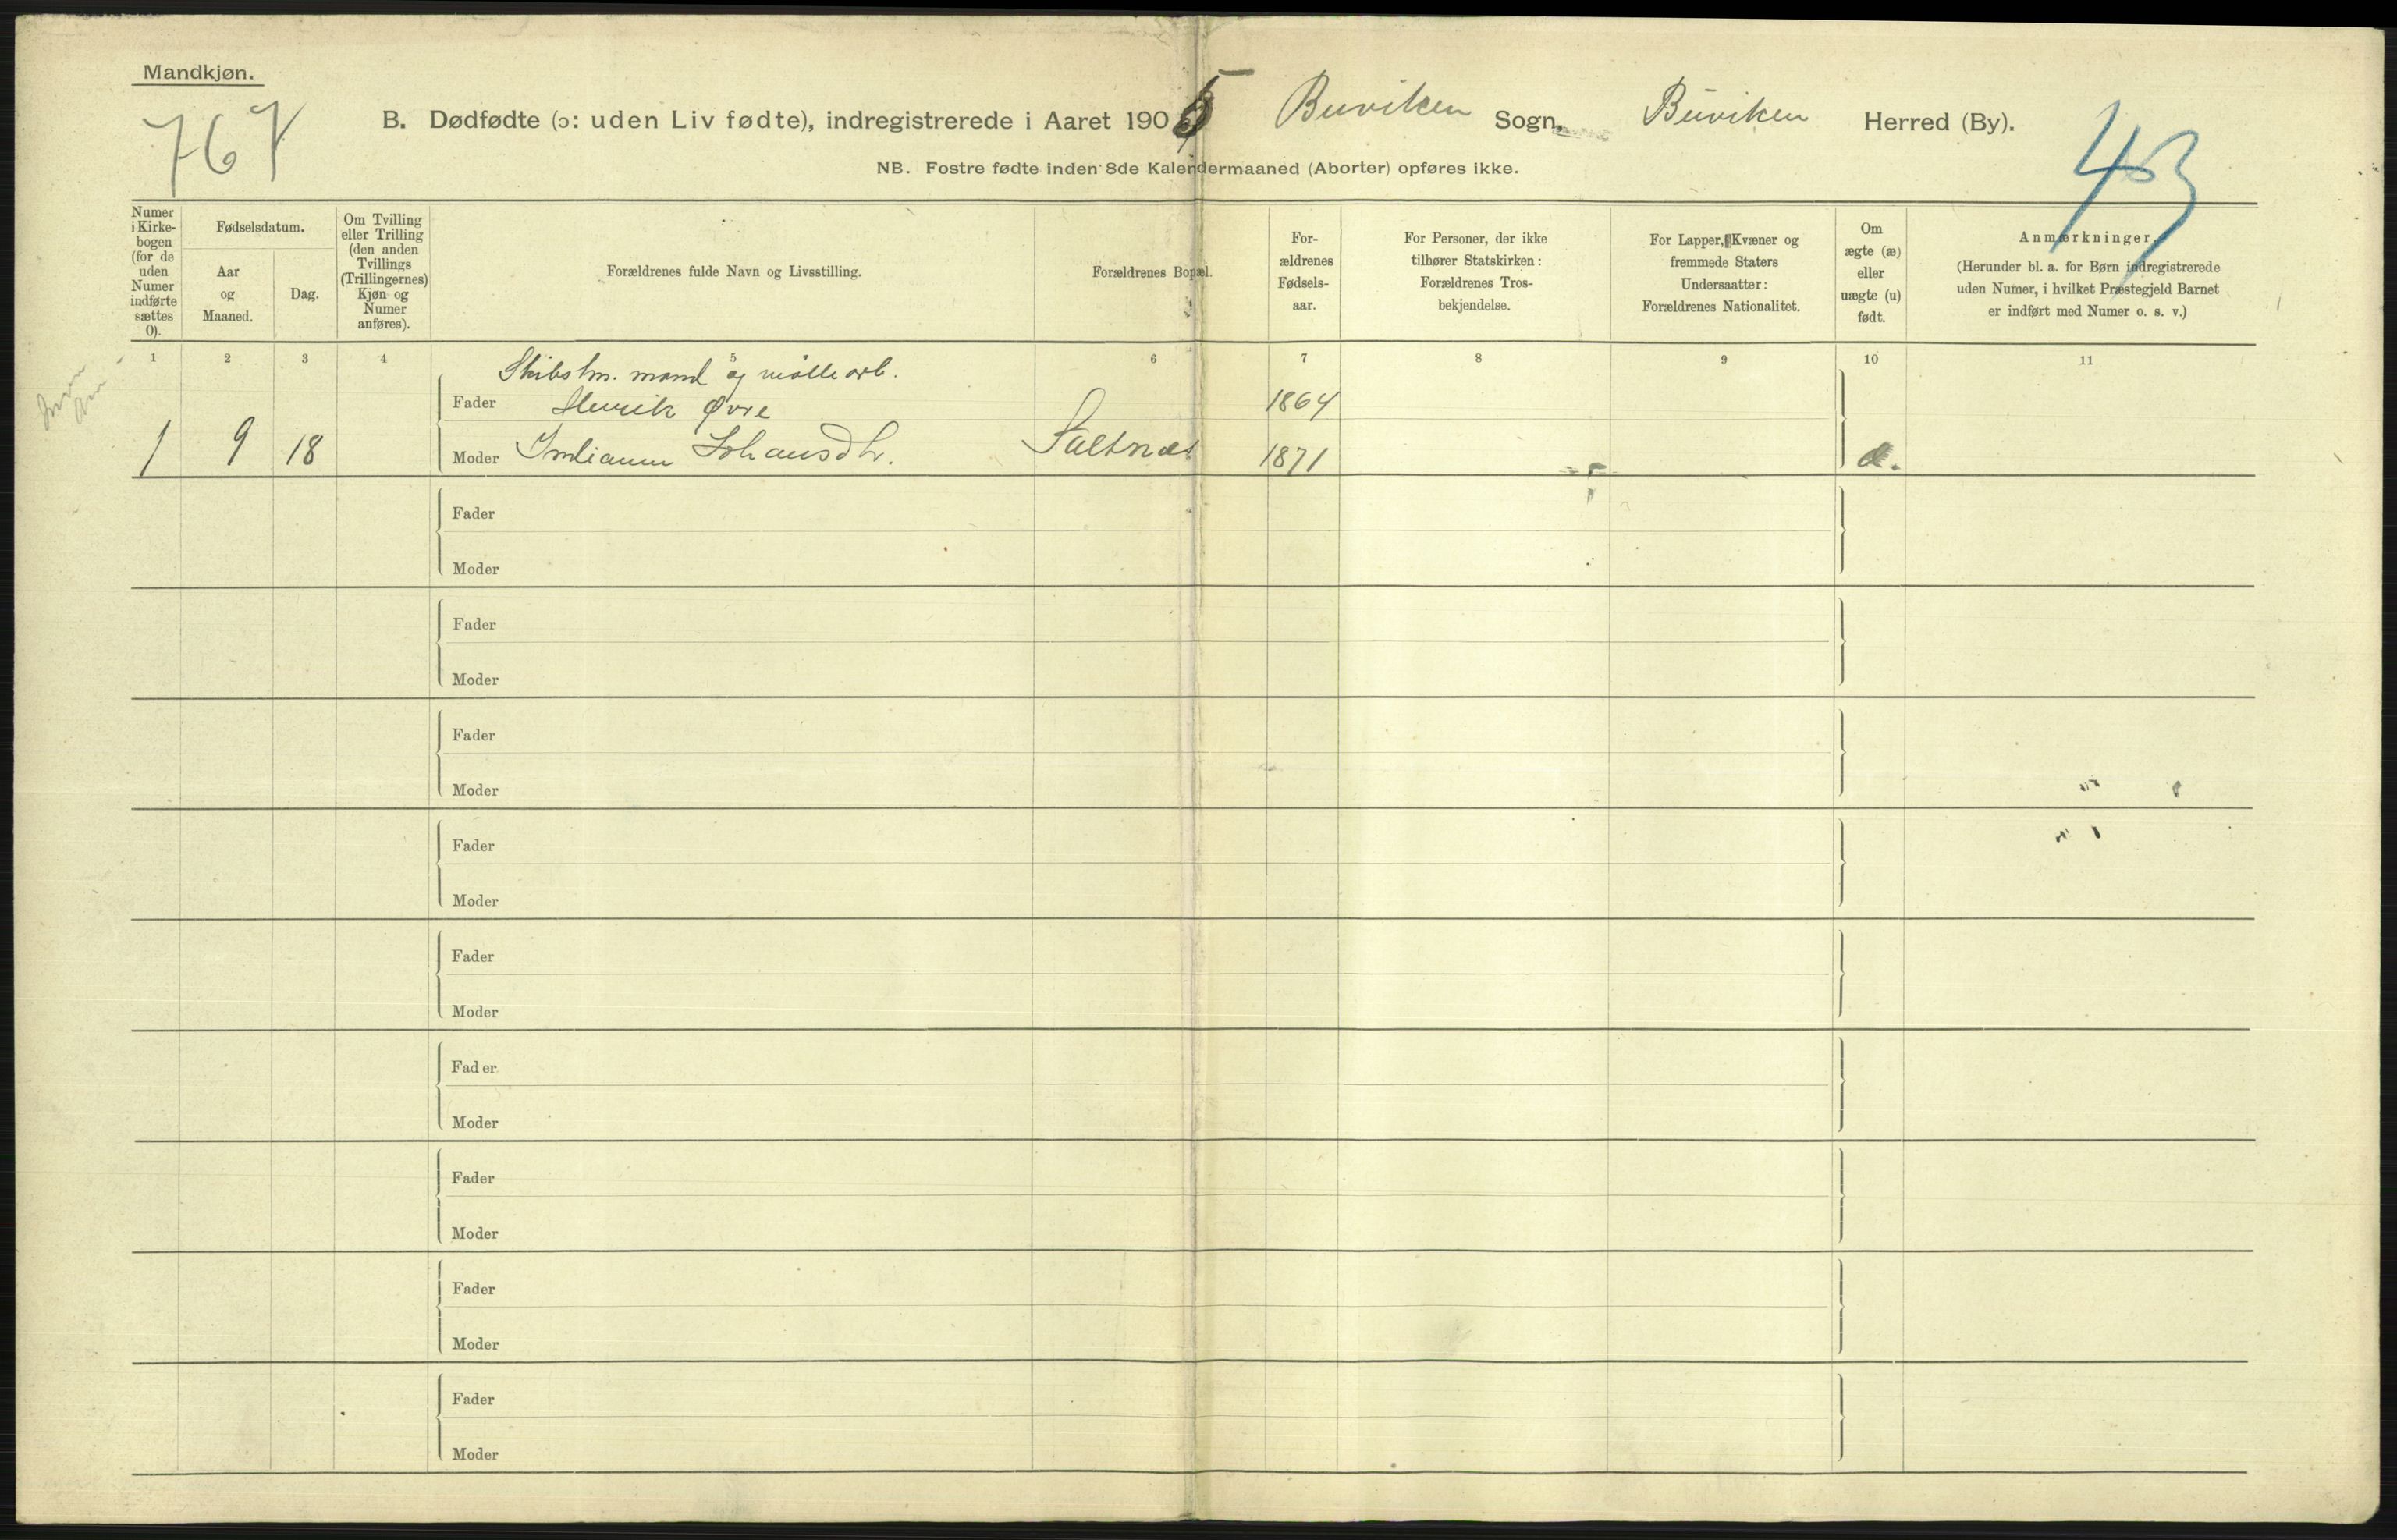 Mandkjøn.
767
B. Dødfødte (ɔ: uden Liv fødte), indregistrerede i Aaret 1905 Buviken Sogn, Buviken Herred (By).
43
NB. Fostre fødte inden 8de Kalendermaaned (Aborter) opføres ikke.
Numer i Kirke-bogen (for de uden Numer indførte sættes 0).
Fødselsdatum.
Aar og Maaned.
Dag.
Om Tvilling eller Trilling (den anden Tvillings (Trillingernes) Kjøn og Numer anføres).
Forældrenes fulde Navn og Livsstilling.
Forældrenes Bopæl.
For-ældrenes Fødsels-aar.
For Personer, der ikke tilhører Statskirken: Forældrenes Tros-bekjendelse.
For Lapper, Kvæner og fremmede Staters Undersaatter: Forældrenes Nationalitet.
Om ægte (æ) eller uægte (u) født.
Anmærkninger.
(Herunder bl. a. for Børn indregistrerede uden Numer, i hvilket Præstegjeld Barnet er indført med Numer o. s. v.)
1 2 3 4 5 6 7 8 9 10 11
mand og mølle arb.
Fader Henrik Øvre 1864
1 9 18 Moder Johansdtr. Saltnæs 1871 æ.
Fader
Moder
Fader
Moder
Fader
Moder
Fader
Moder
Fader
Moder
Fader
Moder
Fader
Moder
Fader
Moder
Fader
Moder